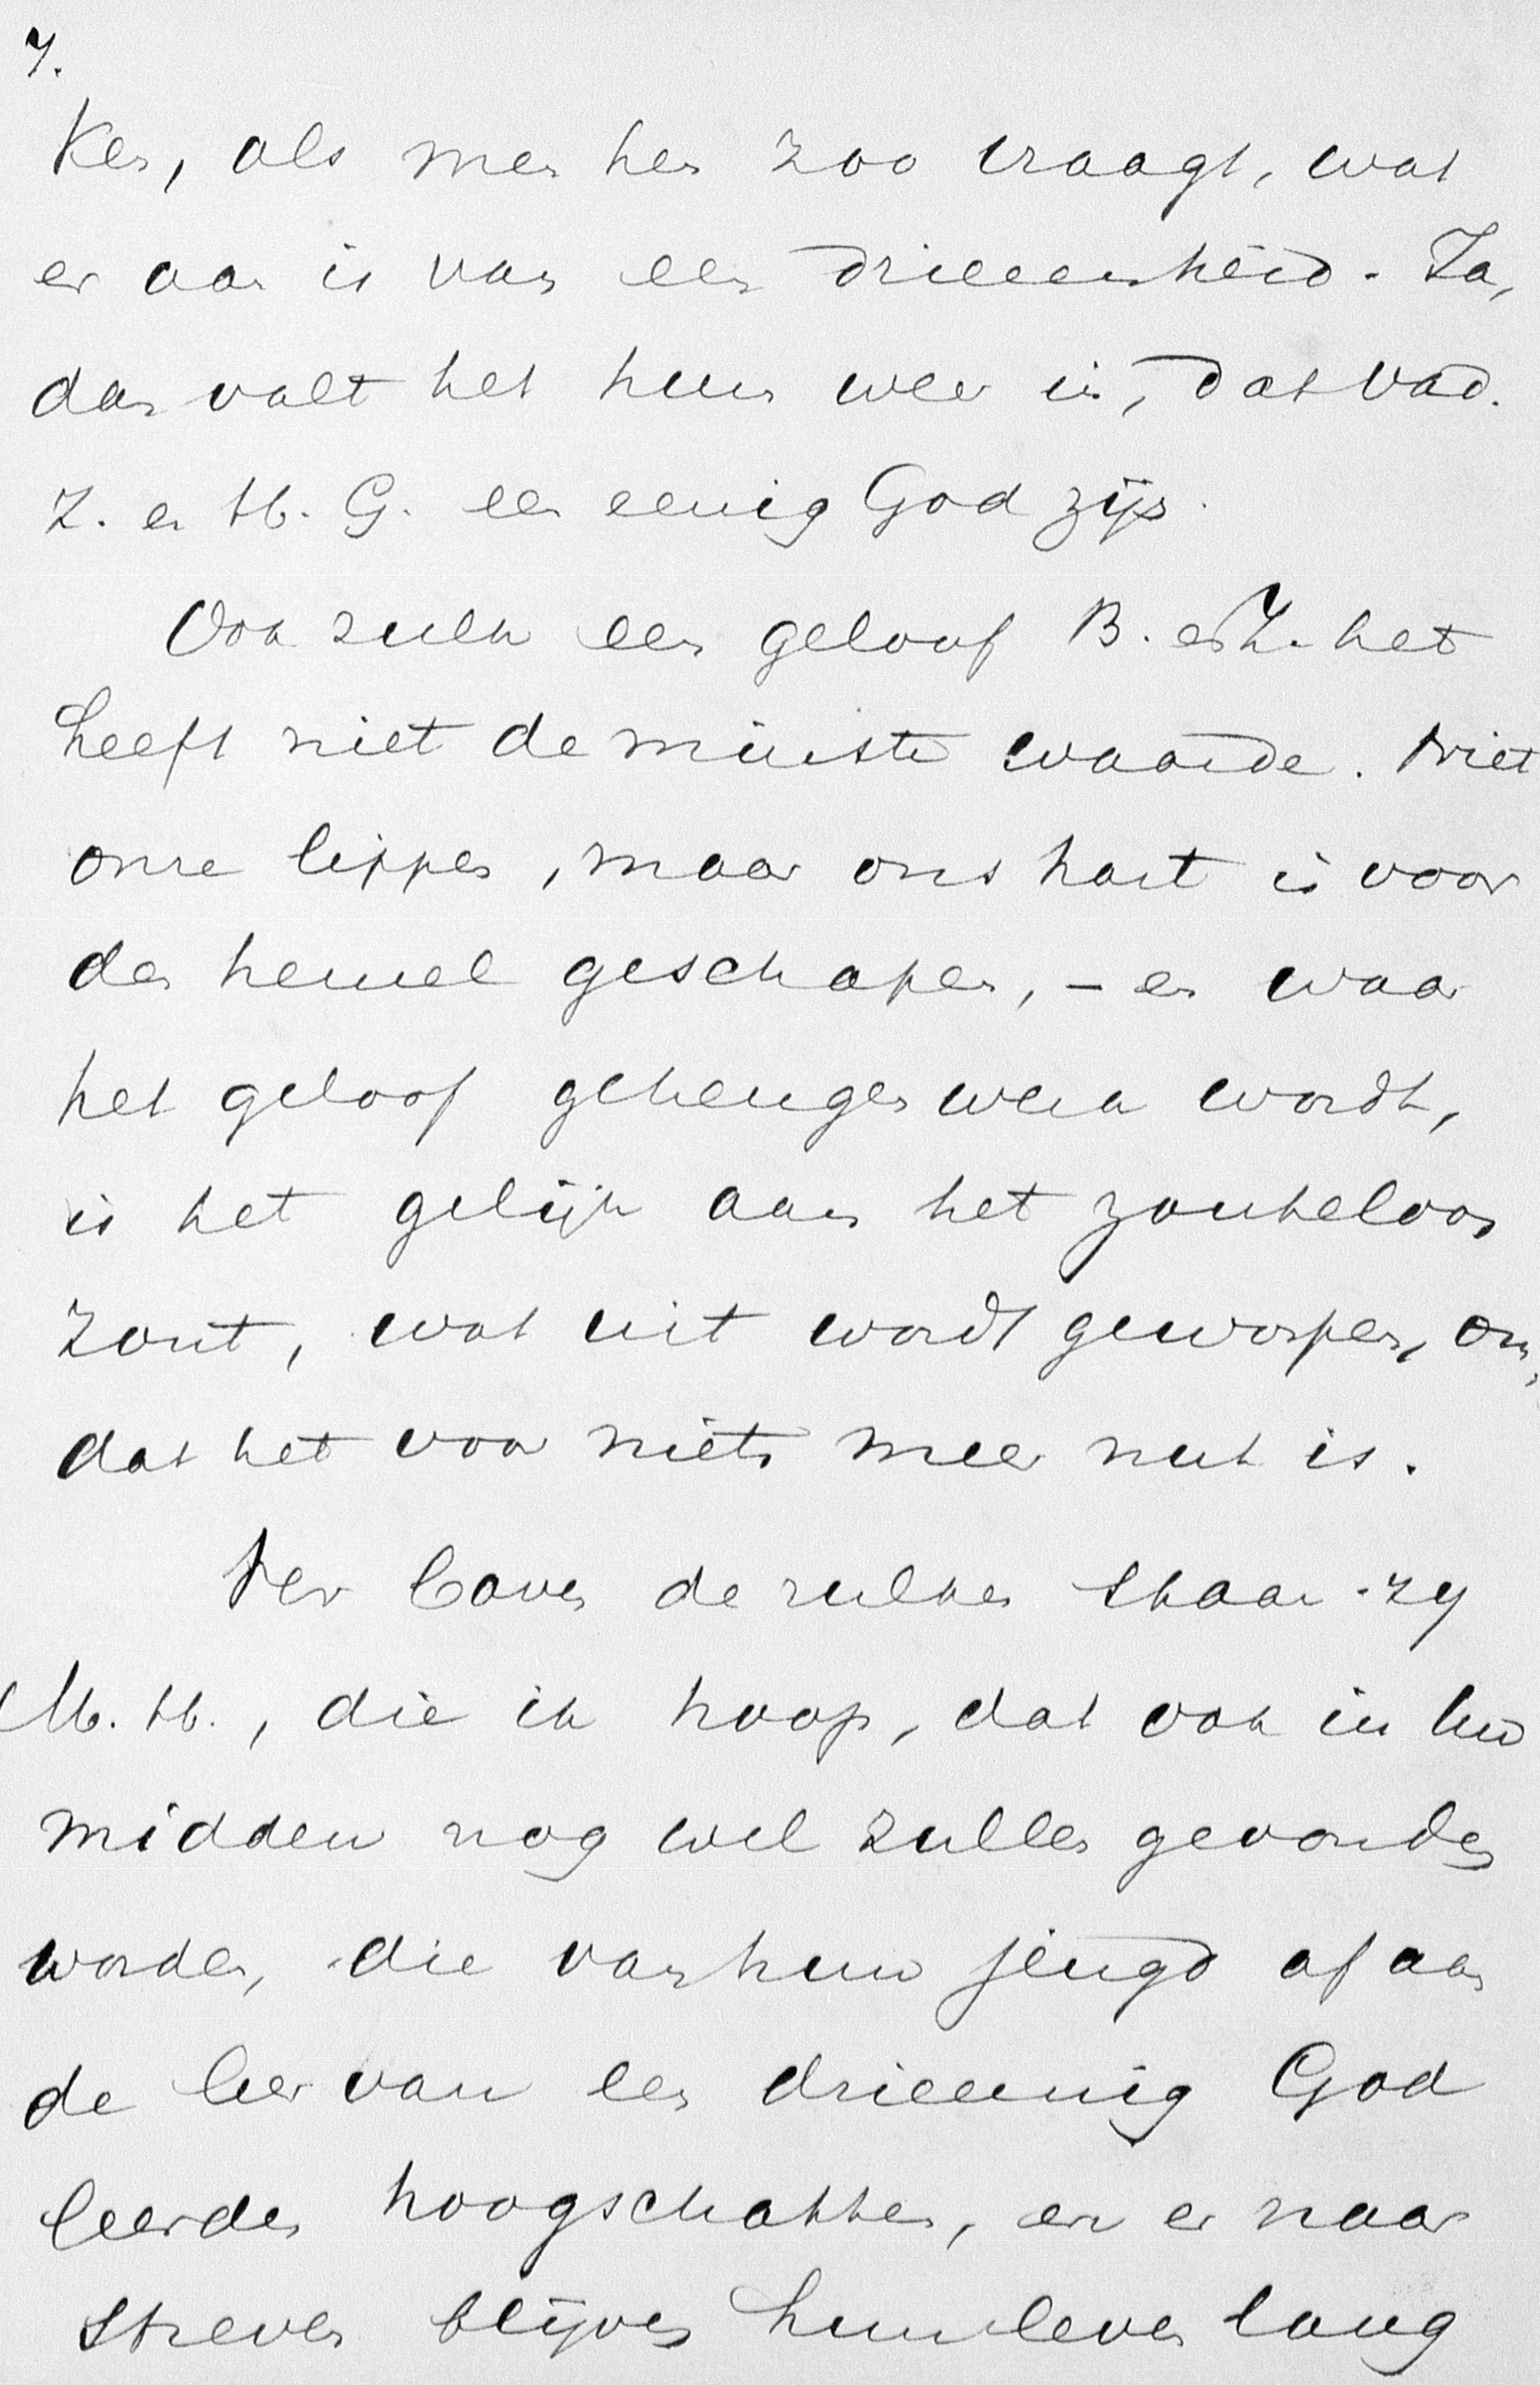 7.
ken, als men hen zoo vraagt, wat
er aan is van een drieeenheid. Ja,
dan valt het hun weer in, dat Vad.
Z. en H. G. een eenig God zijn.
Ook zulk een geloof B. en Z. het
heeft niet de minste waarde. Niet
onze lippen, maar ons hart is voor
den hemel geschapen, – en waar
het geloof geheugenwerk wordt,
is het gelijk aan het zouteloos
zout, wat uit wordt geworpen, om,
dat het voor niets meer nut is.
Ver boven de zulken staan zy
M. H., die ik hoop, dat ook in Uw
midden nog wel zullen gevonden
worden, die van hun jeugd af aan
de leer van een drieeenig God
leerden hoogschatten, en er naar
streven blijven hun leven lang